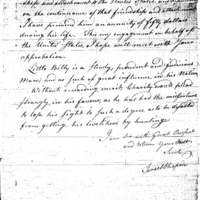 hope and attachment to the United States and
on the continuance of that friendship and
I have promised him an annuity of fifty dollars
during his life. This my engagement on behalf of
the United States, I hope will meet with Your
approbation.
Little Billy is a Steady, prudent and Judicious
Man, and as such of great influence in his Nation
We think rewarding merit, Charity would plead
strongly, in his favour, as he has had the misfortune
to lose his Sight to such a degree as to be disabled
from getting his livelihood by hunting.
I am Sir with Great Respect
and Esteem Your Most
Servt
Israel Chapin